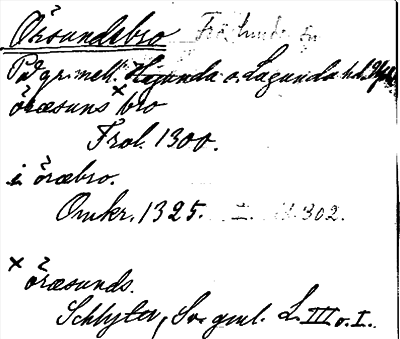 Örsundsbro
På gr. mell. Hagunda o. Lagunda hd.
öræsuns × bro
Frol. 1300.
i öræbro.
Omkr. 1325. 302.
× öræsunds.
Schlyter, Sv. gml. L. III o. I.